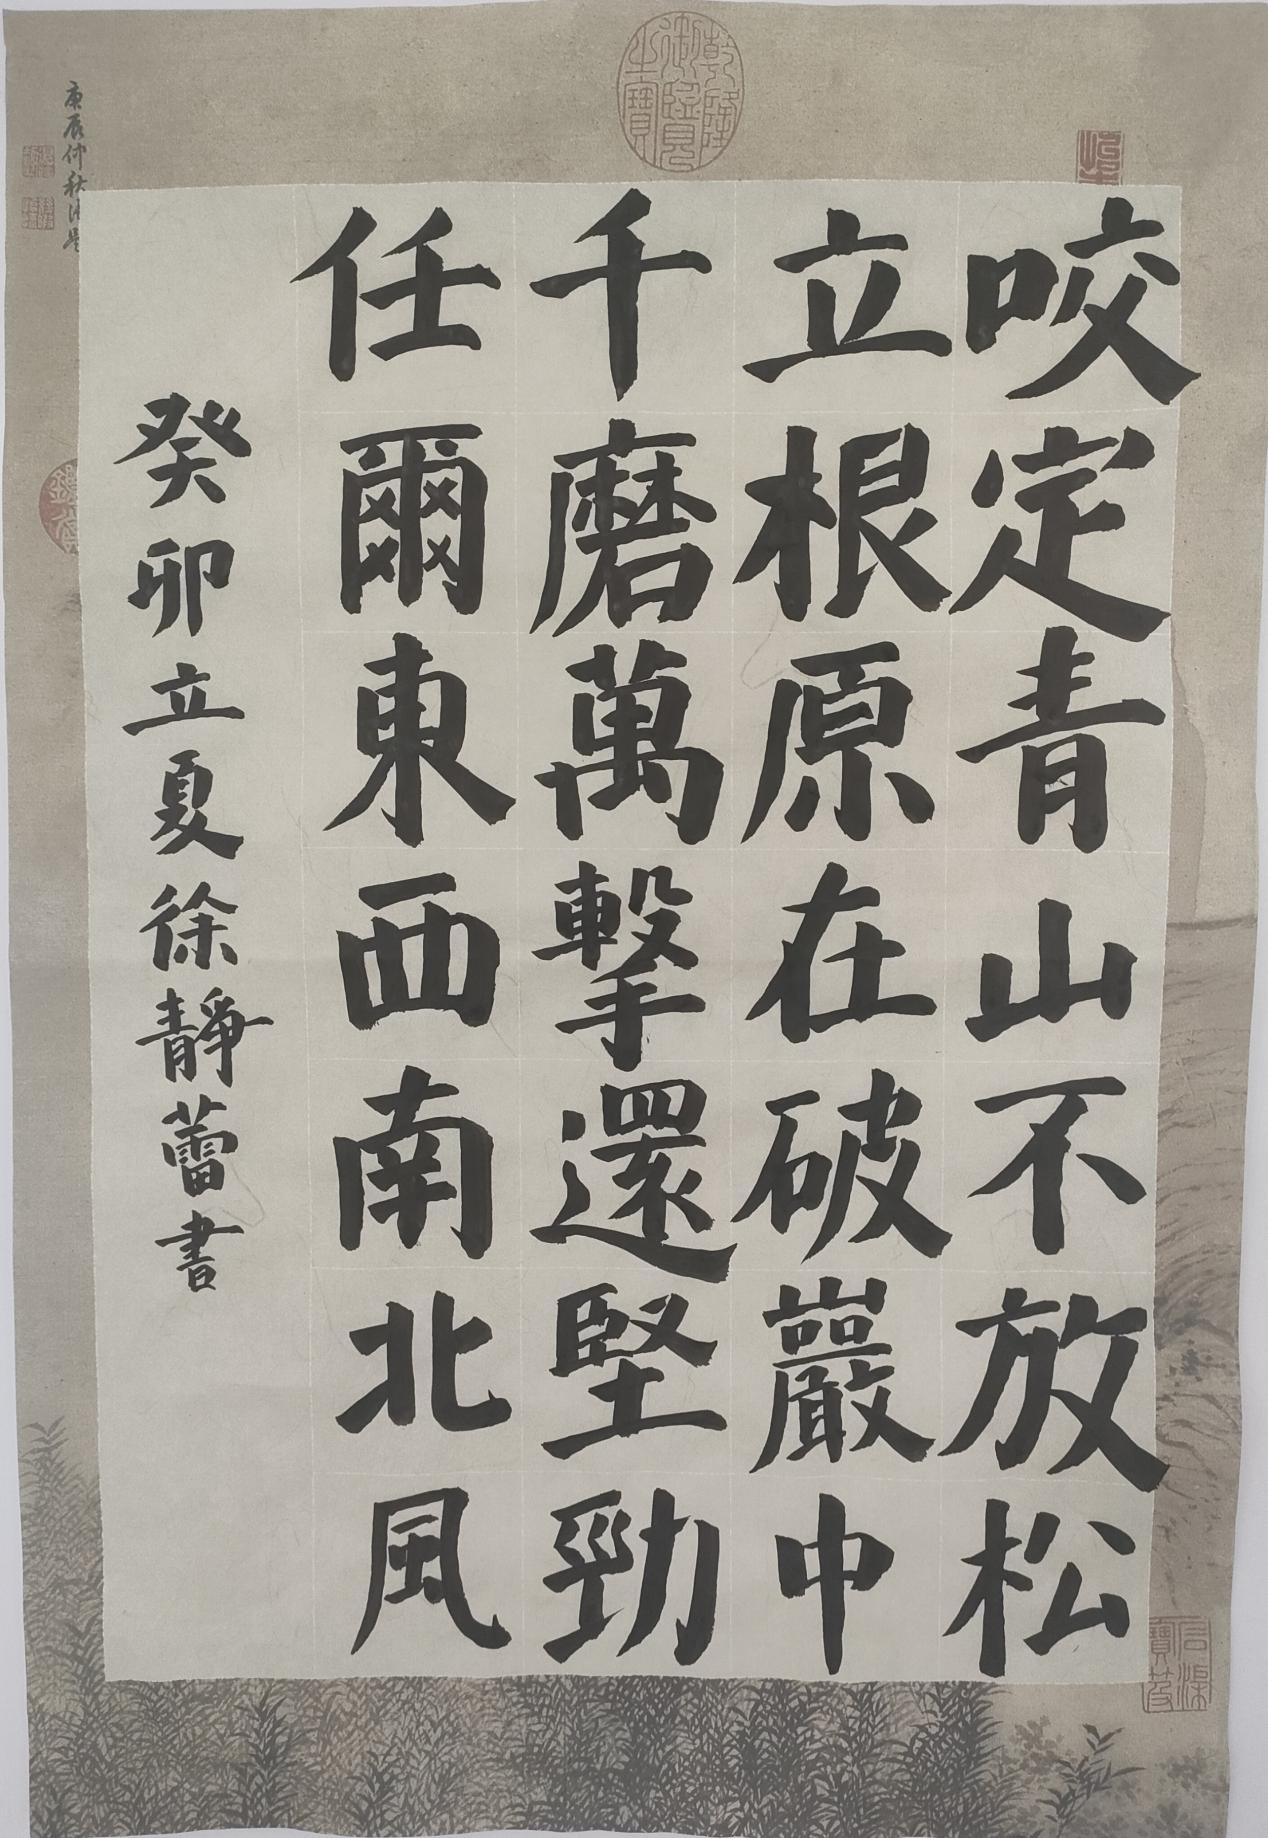 咬定青山不放松
立根原在破巖中
千磨萬擊還堅勁
任爾東西南北風
癸卯立夏徐靜蕾書
乾隆御覽之寶
庚辰仲秋御題